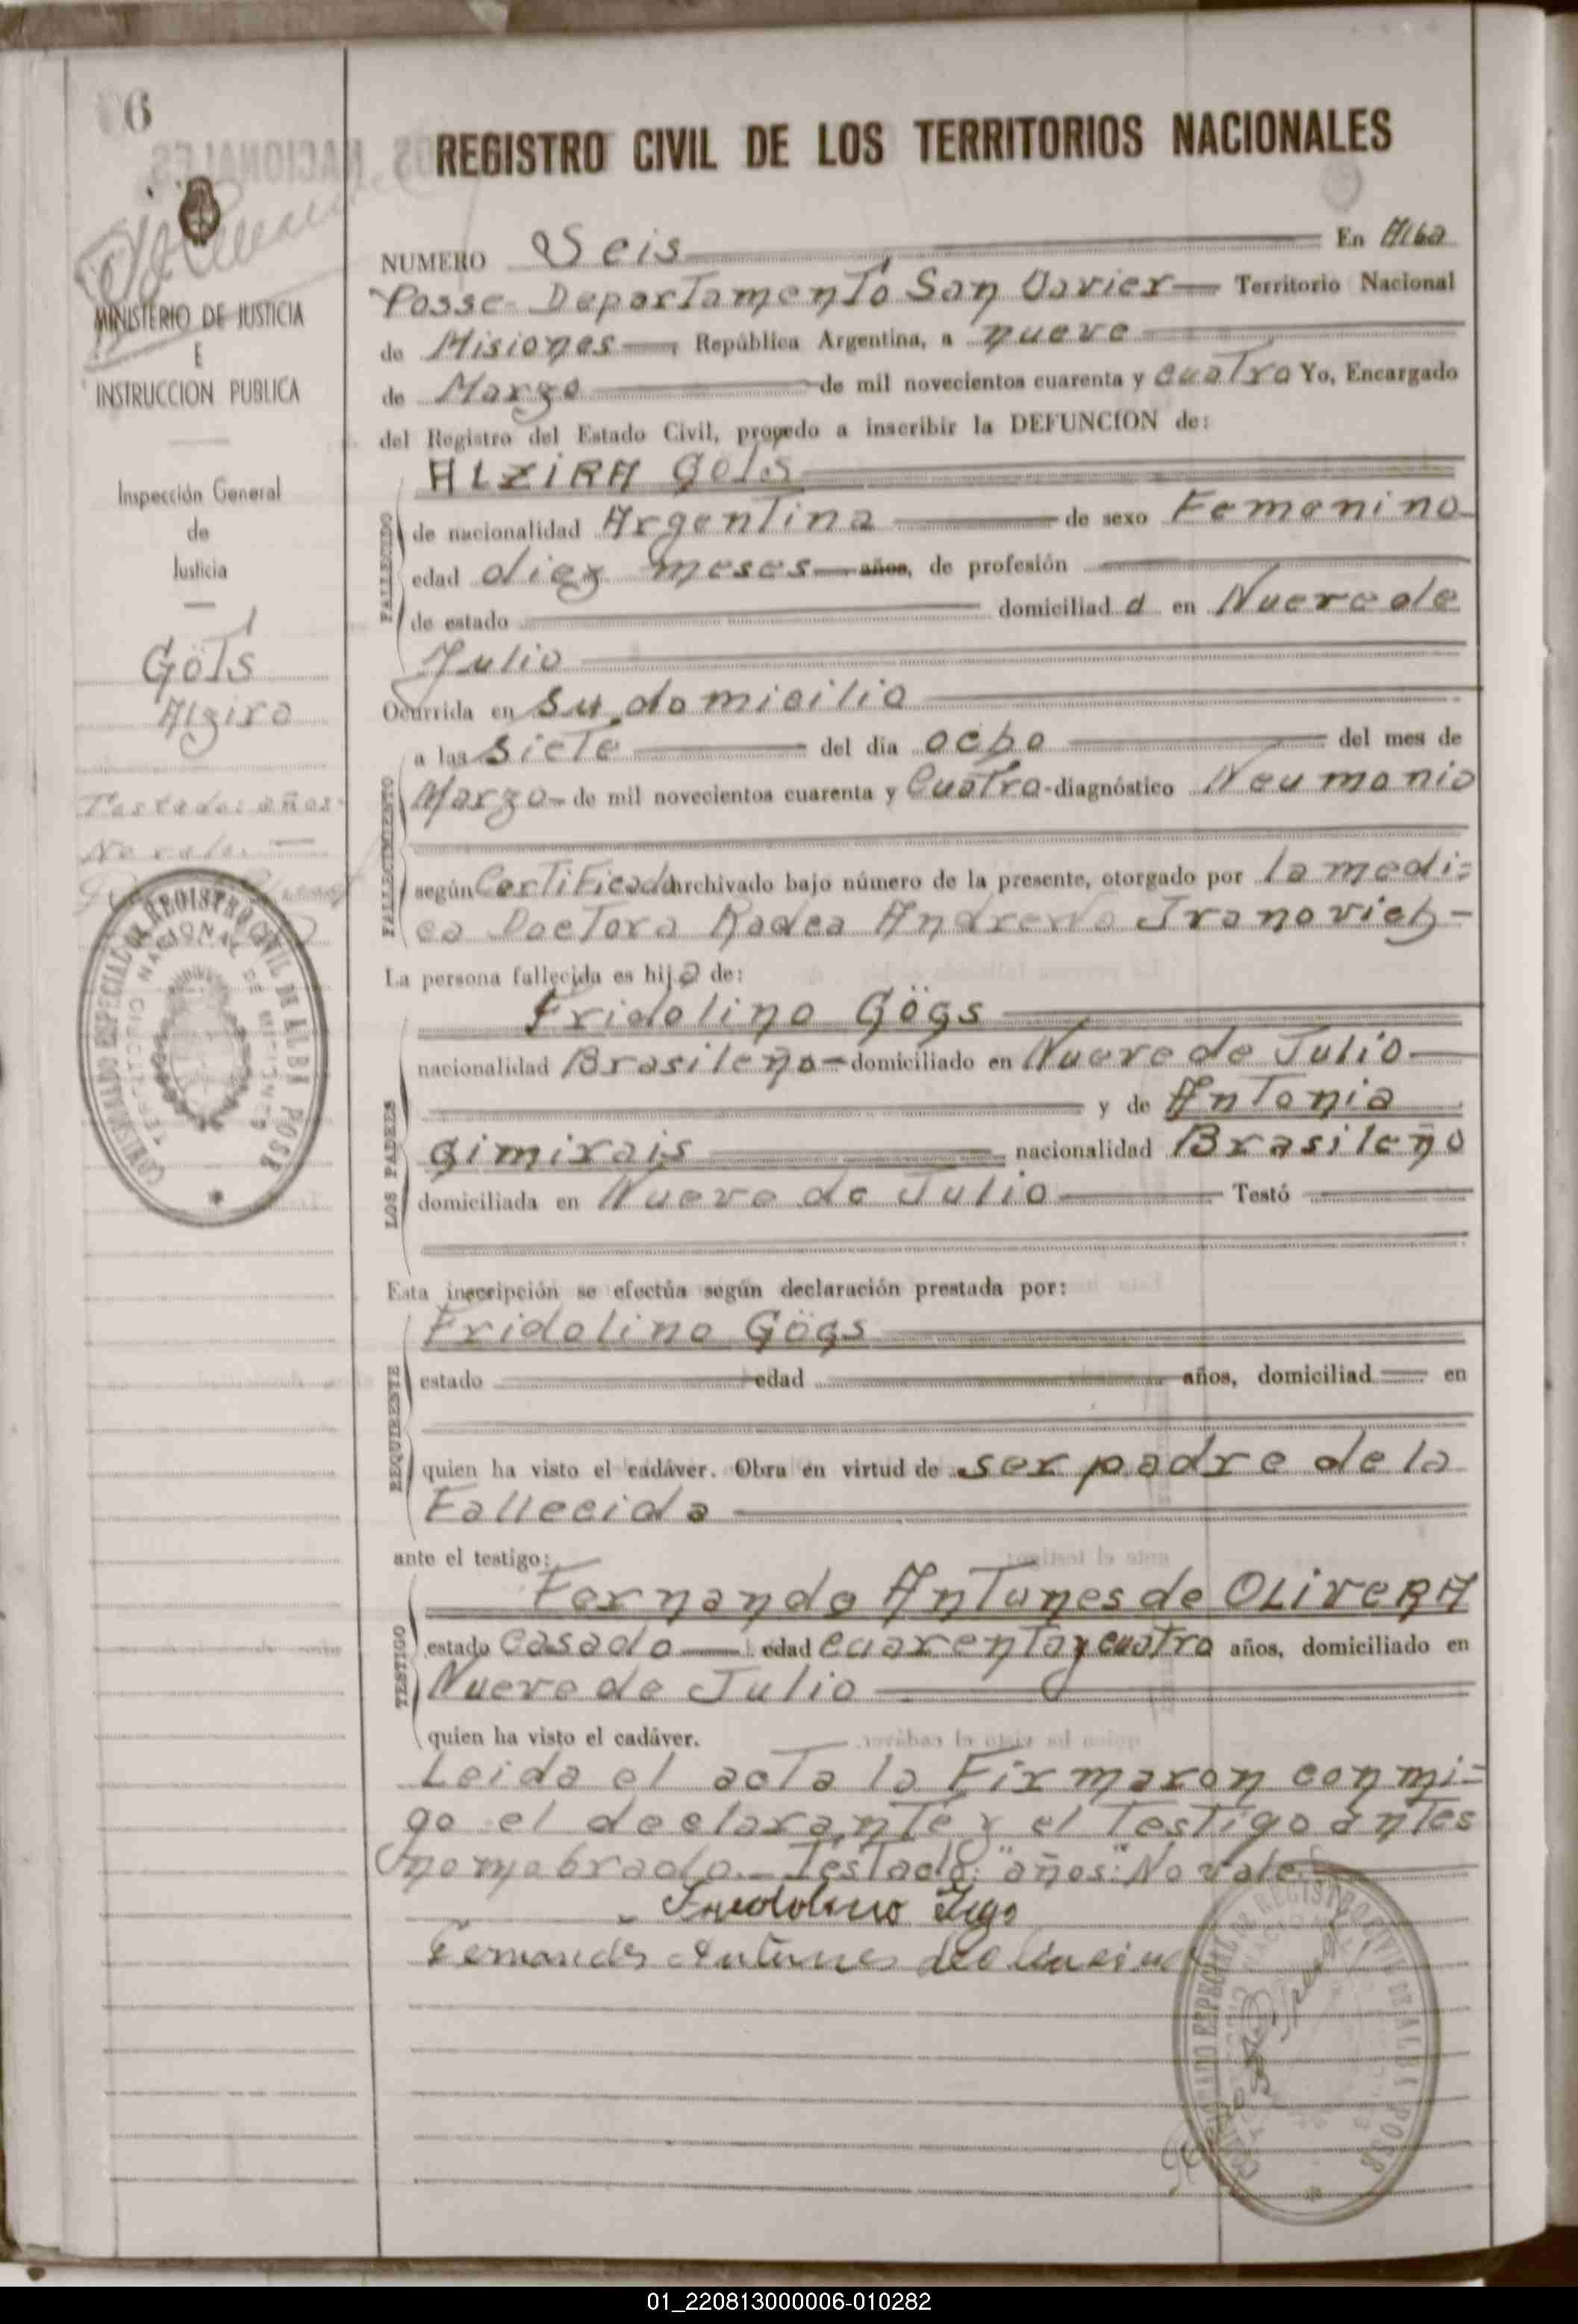 6
REGISTRO CIVIL DE LOS TERRITORIOS NACIONALES
MINISTERIO DE JUSTICIA
E
INSTRUCCION PUBLICA
Inspección General
de
Justicia
Göts
Alzira
Testado: años
No vale.
NUMERO Seis En Alba
Posse Departamento San Javier Territorio Nacional
de Misiones República Argentina, a nueve
de Marzo de mil novecientos cuarenta y cuatro Yo, Encargado
del Registro del Estado Civil, procedo a inscribir la DEFUNCION de:
ALZIRA Göts
FALLECIDO
de nacionalidad Argentina de sexo Femenino
edad diez meses años, de profesión
de estado domiciliad a en Nueve de
Julio
Ocurrida en su domicilio
FALLECIMIENTO
a las siete del día ocho del mes de
Marzo de mil novecientos cuarenta y Cuatro diagnóstico Neumonia
según Certificado archivado bajo número de la presente, otorgado por la medi=
ca Doctora Radea Ivanovich
La persona fallecida es hija de:
LOS PADRES
Fridolino Gögs
nacionalidad Brasileño domiciliado en Nueve de Julio
y de Antonia
Gimirais nacionalidad Brasileño
domiciliada en Nueve de Julio Testó
Esta inscripción se efectúa según declaración prestada por:
REQUIRENTE
Fridolino Gögs
estado edad años, domiciliad en
quien ha visto el cadáver. Obra en virtud de ser padre de la
Fallecida
ante el testigo:
TESTIGO
Fernando Antunes de OLIVERA
estado Casado edad cuarenta y cuatro años, domiciliado en
Nueve de Julio
quien ha visto el cadáver.
Leida el acta la Firmaron conmi=
go el declarante y el Testigo antes
nomebrado.- Testado: "años": No vale.
ENCARGADO ESPECIAL DE REGISTRO CIVIL DE ALBA POSE
TERRITORIO NACIONAL DE MISIONES
01_220813000006-010282